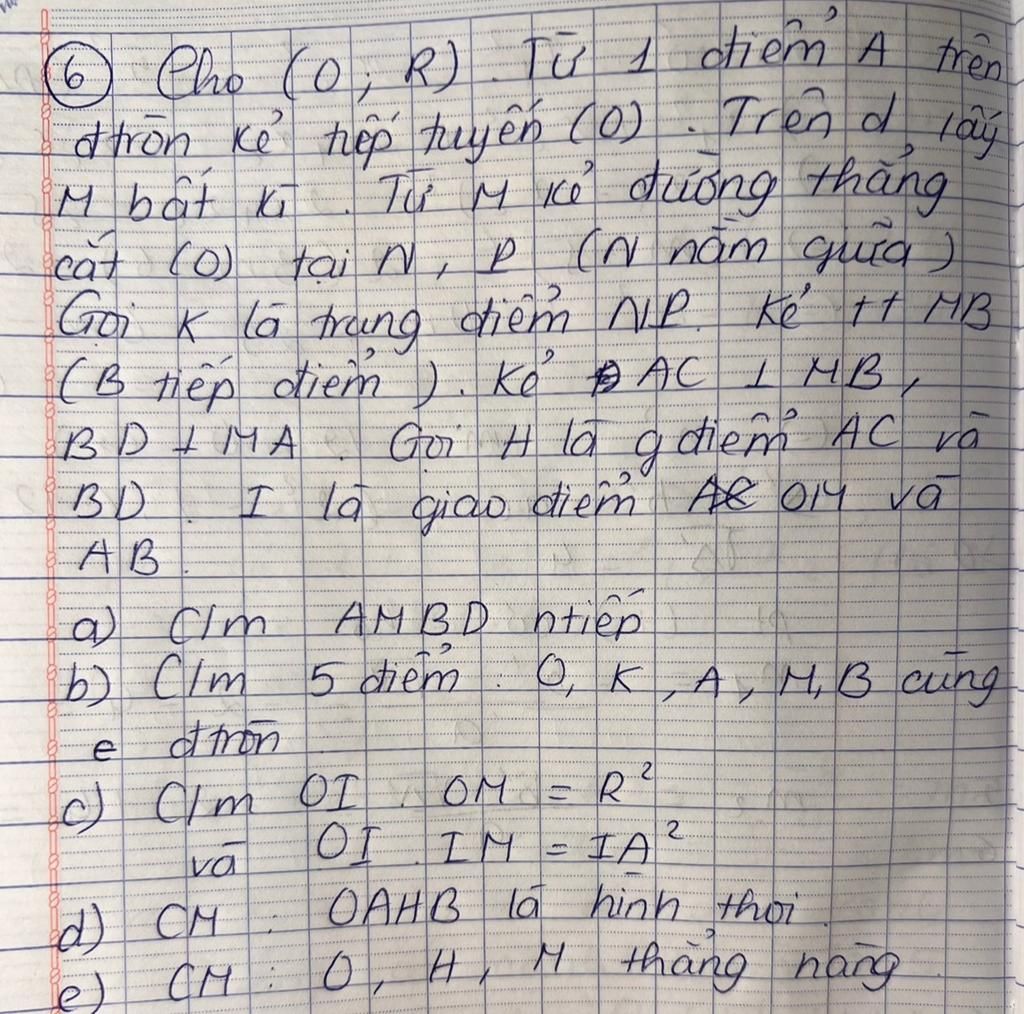 6 Cho (O; R). Từ 1 điểm A trên
đtròn kẻ tiếp tuyến (O). Trên d lấy
M bất kì. Từ M kẻ đường thẳng
cắt (O) tại N, P (N nằm giữa)
Gọi K là trung điểm NP. Kẻ tt MB
(B tiếp điểm). Kẻ AC ⊥ MB,
BD ⊥ MA. Gọi H là gđiểm AC và
BD. I là giao điểm OM và
AB.
a) C/m AMBD ntiếp
b) C/m 5 điểm: O, K, A, M, B cùng
e đtròn
c) C/m OI . OM = R²
và OI . IM = IA²
d) CM: OAHB là hình thoi.
e) CM: O, H, M thẳng hàng.